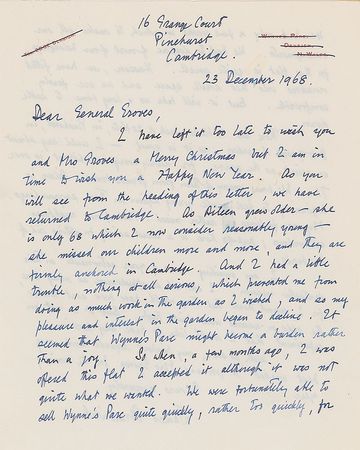 16 Grange Court
Pinehurst
Cambridge.
WYNNE'S PARC,
DENBIGH,
N. WALES.
23 December 1968.
Dear General Groves,
I have left it too late to wish you
and Mrs Groves a Merry Christmas but I am in
time to wish you a Happy New Year. As you
will see from the heading of this letter, we have
returned to Cambridge. As Aileen grows older – she
is only 68 which I now consider reasonably young –
she missed our children more and more, and they are
firmly anchored in Cambridge. And I had a little
trouble, nothing at all serious, which prevented me from
doing as much work in the garden as I wished, and so my
pleasure and interest in the garden began to decline. It
seemed that Wynne's Parc might become a burden rather
than a joy. So when, a few months ago, I was
offered this flat I accepted it although it was not
quite what we wanted. We were fortunately able to
sell Wynne's Parc quite quickly, rather too quickly, for